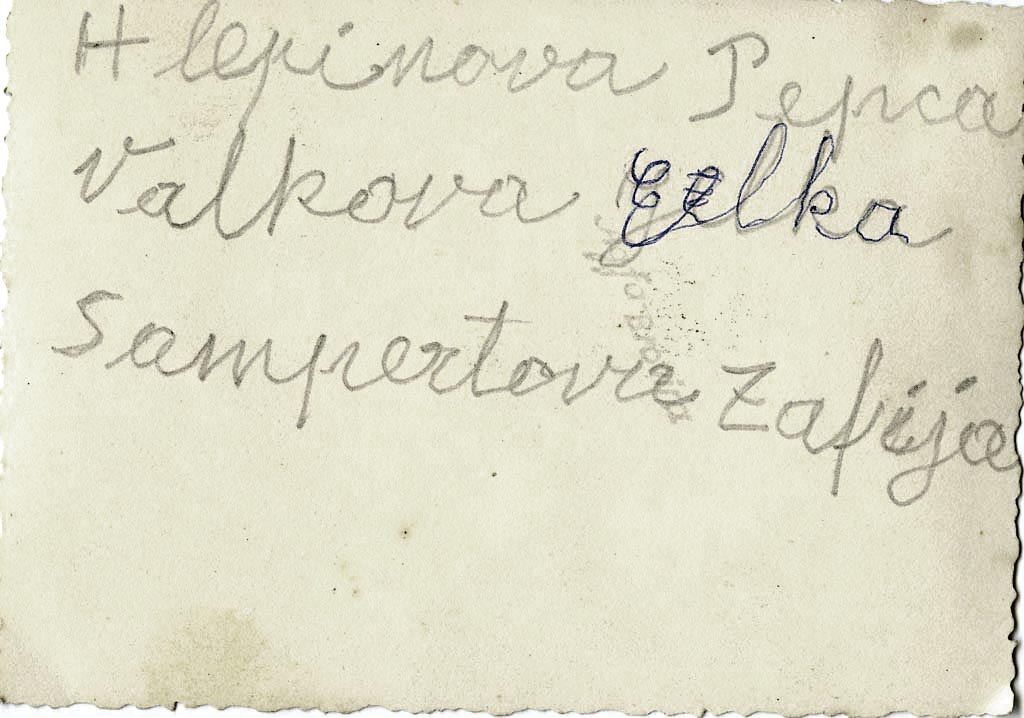 Hlepinova Pepca
Valkova Elka
Sampertova Zafija